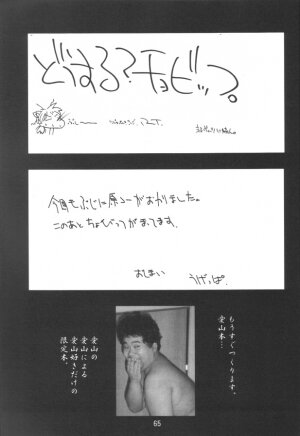 どうする？チョビッツ。
今回もぶじに原コーがおわりました。
このあとちょびっつがまってます。
おしまい
うげっぱ。
もうすぐつくります。
愛山本…
愛山の
愛山による
愛山好きだけの
限定本。
65